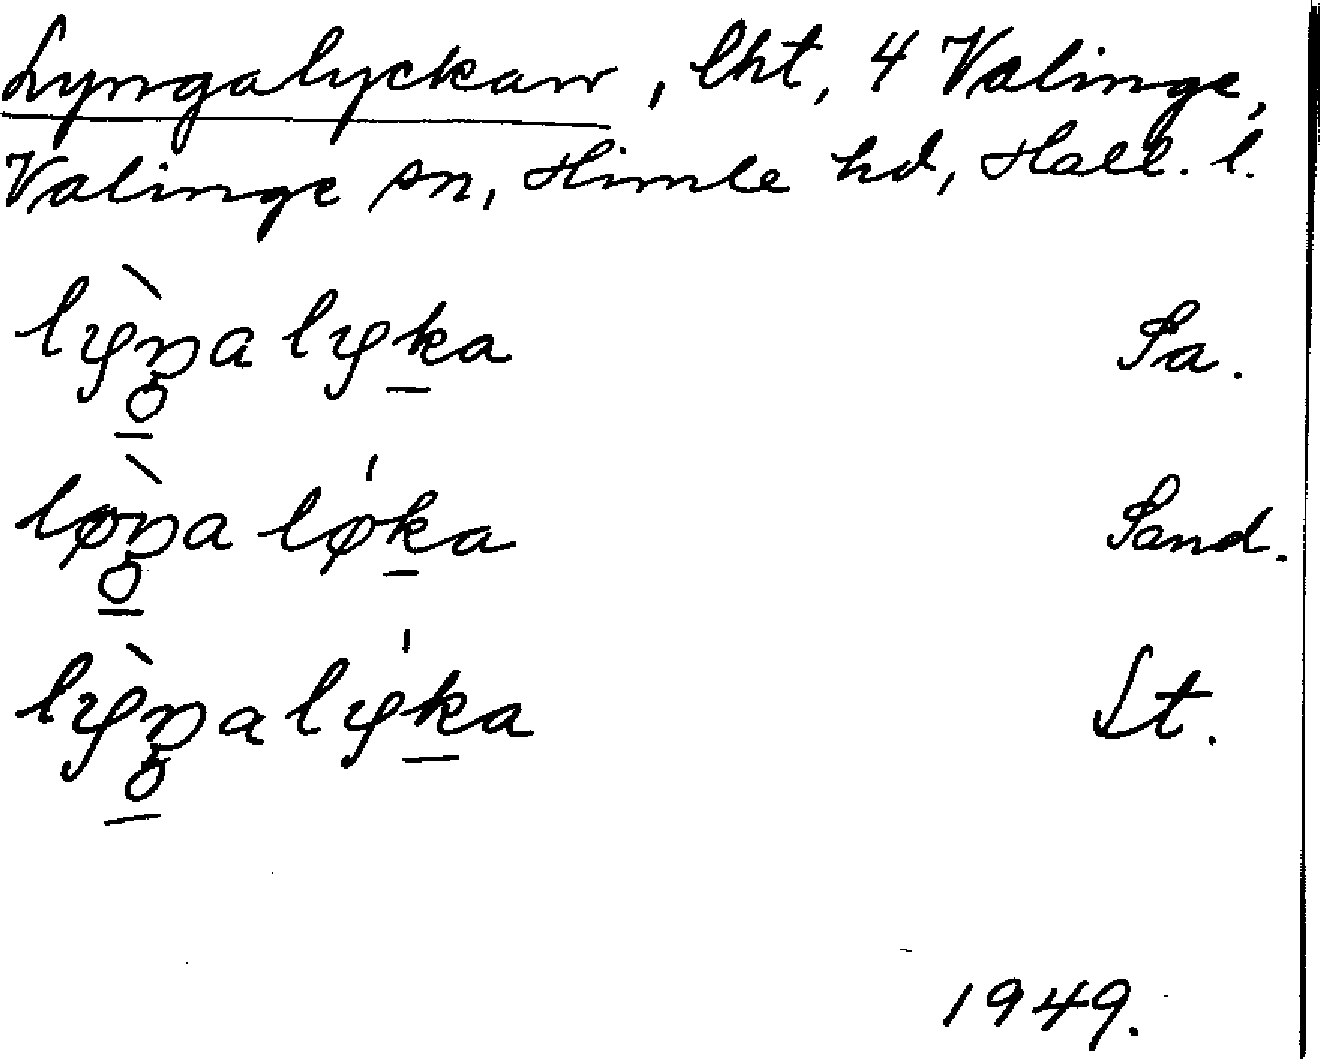 Lyngalyckan, lht, 4 Valinge,
Valinge sn, Himle hd, Hall. l.
lỳŋalyka Sa.
lø̀ŋaløka Sand.
lỳŋalyka Lt.
1949.